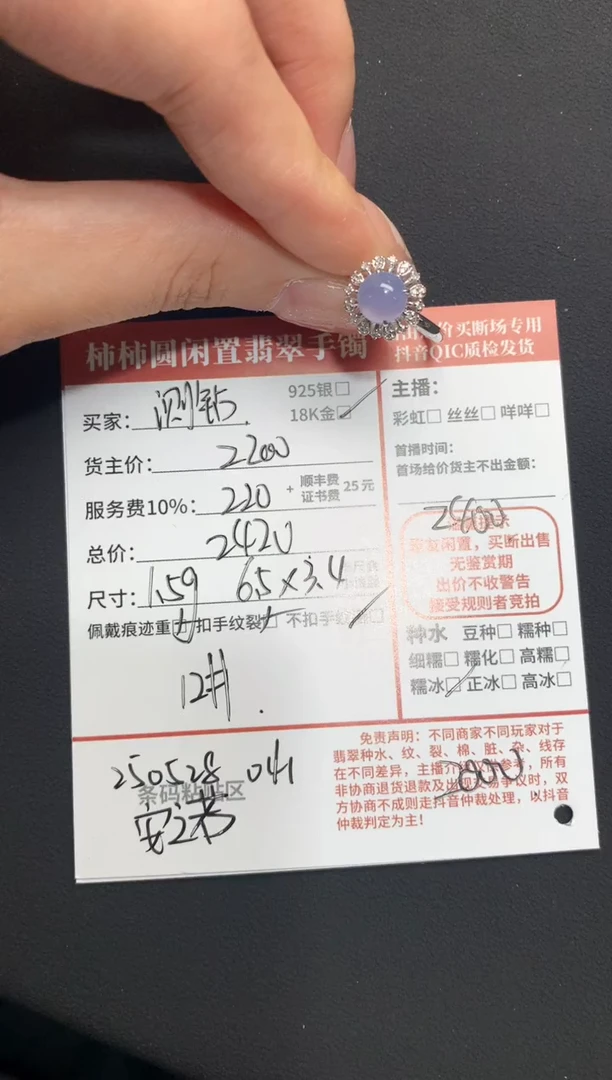 柿柿圆闲置翡翠手镯
价买断场专用
抖音QIC质检发货
买家: 测钻
925银□
18K金□
货主价: 2200
服务费10%: 220 + 顺丰费 证书费 25元
总价: 2420
尺寸: 1.59 6.5×3.4
佩戴痕迹重 扣手纹裂 不扣手纹
12#.
主播:
彩虹□ 丝丝□ 咩咩□
首播时间:
首场给价货主不出金额:
闲置, 买断出售
无鉴赏期
出价不收警告
接受规则者竞拍
种水 豆种□ 糯种□
细糯□ 糯化□ 高糯□
糯冰□ 正冰□ 高冰□
250528
条码粘贴区
免责声明: 不同商家不同玩家对于
翡翠种水、纹、裂、棉、脏、杂、线存
在不同差异, 主播介 参考, 所有
非协商退货退款及出现交易争议时, 双
方协商不成则走抖音仲裁处理, 以抖音
仲裁判定为主!
2800